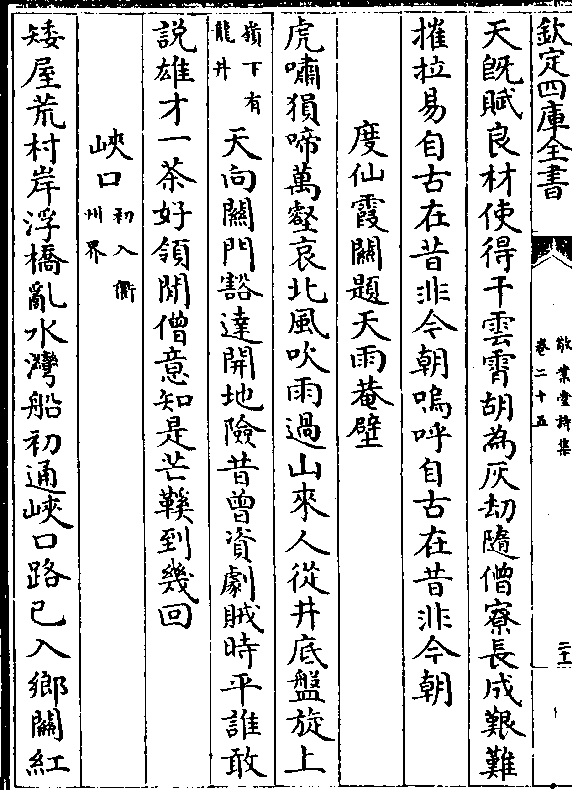 欽定四庫全書
敬業堂詩集
卷二十五
二十一
天既賦良材使得干雲霄胡為灰刧隨僧寮長成艱難
摧拉易自古在昔非今朝嗚呼自古在昔非今朝
度仙霞關題天雨菴壁
虎嘯猿啼萬壑哀北風吹雨過山來人從井底盤旋上
嶺下有
龍井
天向關門豁達開地險昔曾資劇賊時平誰敢
説雄才一茶好領閒僧意知是芒鞵到幾回
峽口
初入衢
州界
矮屋荒村岸浮橋亂水灣船初通峽口路已入鄉關紅